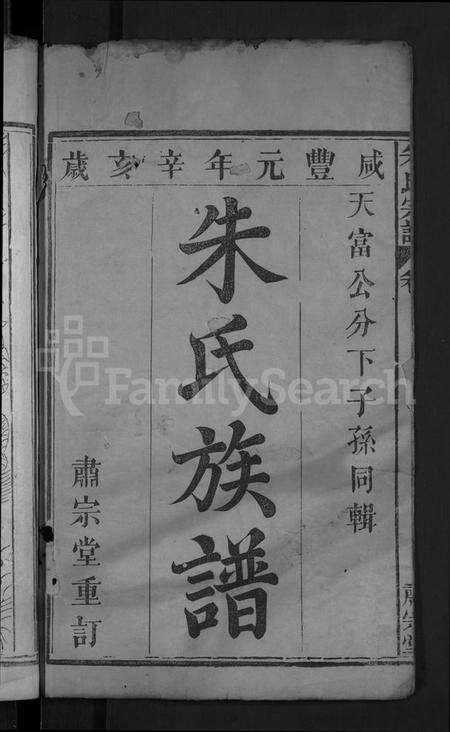 咸豐元年辛亥歲
天富公分下子孫同輯
朱氏族譜
肅宗堂重訂
朱氏宗譜
卷
肅宗堂
FamilySearch